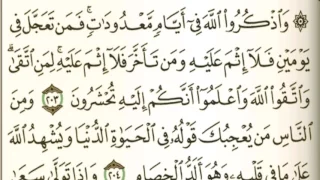 ۞ وَاذْكُرُوا اللَّهَ فِي أَيَّامٍ مَّعْدُودَاتٍ ۚ فَمَن تَعَجَّلَ فِي
يَوْمَيْنِ فَلَا إِثْمَ عَلَيْهِ وَمَن تَأَخَّرَ فَلَا إِثْمَ عَلَيْهِ ۚ لِمَنِ اتَّقَىٰ ۗ
وَاتَّقُوا اللَّهَ وَاعْلَمُوا أَنَّكُمْ إِلَيْهِ تُحْشَرُونَ ٢٠٣ وَمِنَ
النَّاسِ مَن يُعْجِبُكَ قَوْلُهُ فِي الْحَيَاةِ الدُّنْيَا وَيُشْهِدُ اللَّهَ
عَلَىٰ مَا فِي قَلْبِهِ وَهُوَ أَلَدُّ الْخِصَامِ ٢٠٤ وَإِذَا تَوَلَّىٰ سَعَىٰ